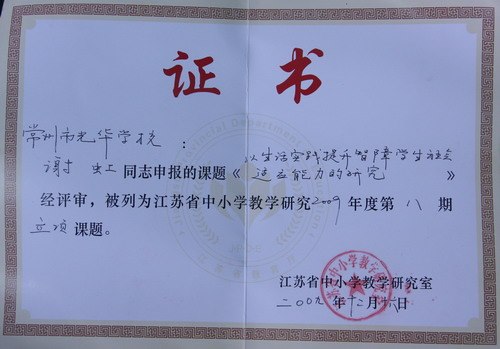 证书
常州市光华学校：
谢虹同志申报的课题《以生活实践提升智障学生社会
适应能力的研究》
经评审，被列为江苏省中小学教学研究2009年度第八期
立项课题。
江苏省中小学教学研究室
二00九年十二月十六日